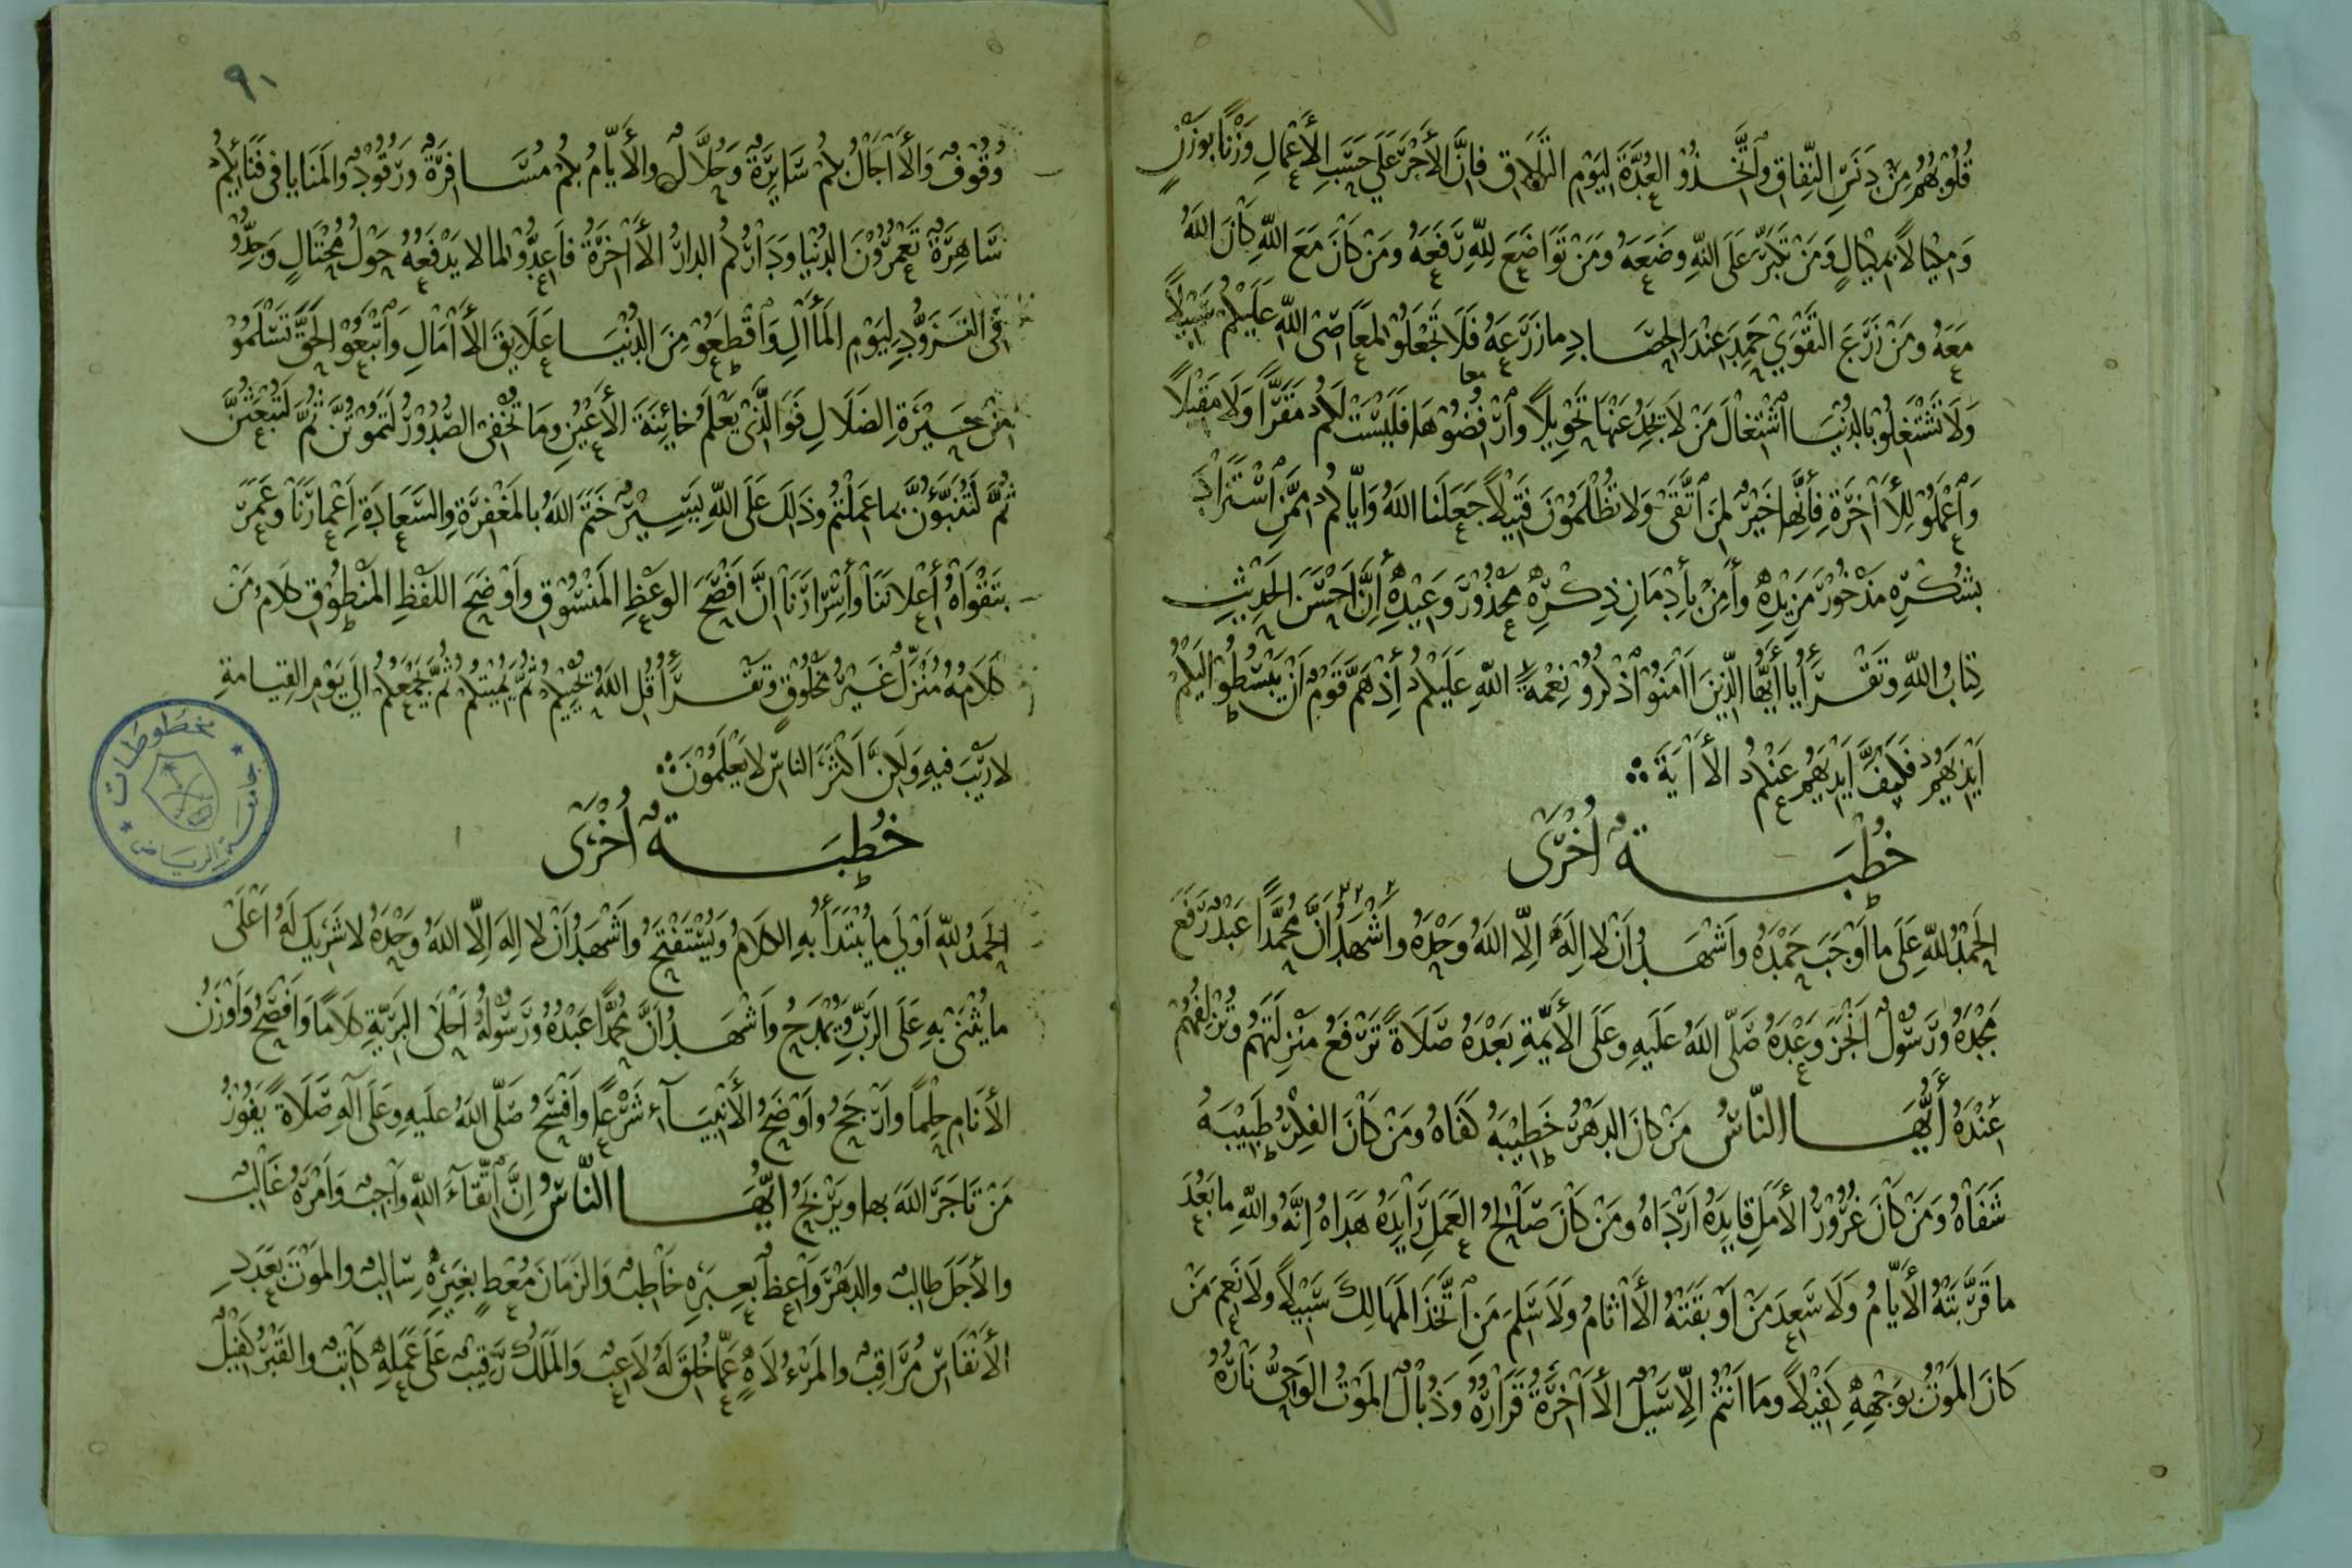 قُلُوْبُهُمْ مِنْ دَنَسِ النِّفَاقِ وَٱتَّخَذُوْ العُدَّةَ لِيَوْمِ التَّلَاقِ فَإِنَّ الأَجْرَ عَلَي حَسَبِ الأَعْمَالِ وَزْنًا بِوَزْنٍ
وَمِكْيَالًا بِمِكْيَالٍ وَمَنْ تَكَبَّرَ عَلَى اللهِ وَضَعَهُ وَمَنْ تَوَاضَعَ لِلّهِ رَفَعَهُ وَمَنْ كَانَ مَعَ اللهِ كَانَ اللهُ
مَعَهُ وَمَنْ زَرَعَ التَّقْوَي حَمِدَ عِنْدَ الحِصَادِ مَا زَرَعَهُ فَلَا تَجْعَلُوْ لِمَعَاصِى اللهِ عَلَيْكُمْ سَبِيْلًا
وَلَا تَشْتَغِلُوْ بِالدُنْيَا ٱشْتِغْالَ مَنْ لَا يَجِدُ عَنْهَا تَحْوِيْلًا وَٱرْفُضُوْهَا فَلَيْسَتْ لَكُمْ مَقَرًّا وَلَا مَقْيَلًا
معا
وَٱعْمَلُوْ لِلْأَاخِرَةِ فَأِنَّهَا خَيْرٌ لِمَنِ ٱتَّقَىْ وَلَا تُظْلَمُوْنَ فَتِيْلًا جَعَلَنَا اللهُ وَاِيَّاكُمْ مِمَّنِ ٱسْتَزَادَ
بِشُكْرِهِ مَذْخُوْرَ مَزِيْدِهِ وَأَمِنَ بِأِدْمَانِ ذِكْرِهِ مَحْذُوْرَ وَعِيْدِهِ أِنَّ اَحْسَنَ الحَدِيْثِ
كِتَابُ اللهِ وَتَقْرَأُ يَا أَيُّهَا الَّذِيْنَ اَامَنُوْ ٱذْكُرُوْ نِعْمَةَ اللهِ عَلَيْكُمْ أِذْ هَمَّ قَوْمٌ اَنْ يَبْسُطُوْ اِلَيْكُمْ
اَيْدِيَهُمْ فَكَفَّ اَيْدِيَهُمْ عَنْكُمْ الأَاْيَةَ
خُطْبَةٌ اُخْرَىْ
الحَمْدُ لِلّهِ عَلَى مَا اَوْجَبَ حَمْدَهُ وَاَشْهَدُ اَنْ لَا اِلَهَ اِلَّا اللهُ وَحْدَهُ وَاَشْهَدُ اَنَّ مُحَمَّدًا عَبْدٌ رَفَعَ
مَجْدَهُ وَرَسُوْلٌ اَنْجَزَ وَعْدَهُ صَلَّى اللهُ عَلَيهِ وَعَلَى الأَئِمَّةِ بَعْدَهُ صَلَاةً تَرْفَعُ مَنْزِلَتَهُمْ وَتُزْلِفُهُمْ
عِنْدَهُ أَيُّهَا النَّاسُ مَنْ كَانَ الدَهْرُ خَطِيْبَهُ كَفَاهُ وَمَنْ كَانَ الفِكْرُ طَبِيْبَهُ
شَفَاهُ وَمَنْ كَانَ غُرُوْرُ الأَمَلِ قَايِدَهُ اَرْدَاهُ وَمَنْ كَانَ صَالِحُ العَمَلِ رَايِدَهُ هَدَاهُ اِنَّهُ وَاللهِ مَا بَعُدَ
مَا قَرَّبَتْهُ الأَيَّامُ وَلَا سَعِدَ مَنْ اَوْبَقَتْهُ الأَاثَامُ وَلَا سَلِمَ مَنِ اتَّخَذَ المَهَالِكَ سَبِيْلًا وَلَا نَعِمَ مَنْ
كَانَ المَوْتُ بِوَجْهِهِ كَفِيْلًا وَمَا اَنْتُمْ اِلَّا سَيْلٌ الأَاخِرَةُ قَرَارُهُ وَذُبَالٌ المَوْتُ الوَحِيُّ نَارُهُ
٩١
وُقُوْفٌ وَالأَاجَالُ بِكُمْ سَايِرَةٌ وَحُلَّالٌ وَالأَيَّامُ بِكُمْ مُسَافِرَةٌ وَرُقُوْدٌ وَالمَنَايَا فِى فَنَائِكُمْ
سَاهِرَةٌ تَعْمُرُوْنَ الدُنْيَا وَدَارُكُمُ الدَارُ الأَاخِرَةُ فَاَعِدُّوْ لِمَا لَا يَدْفَعُهُ حَوْلُ مُحْتَالٍ وَجِدُّوْ
فِى التَزَوُّدِ لِيَوْمِ المَأَالِ وَاقْطَعُوْ مِنَ الدُنْيَا عَلَايِقَ الأَامَالِ وَٱتْبَعُوْ الحَقَّ تَسْلَمُوْ
مِنْ حَيْرَةِ الضَلَالِ فَوَالَّذِىْ يَعْلَمُ خَائِنَةَ الأَعْيُنِ وَمَا تُخْفِى الصُدُوْرُ لَتَمُوْتُنَّ ثُمَّ لَتُبْعَثُنَّ
ثُمَّ لَتُنَبَّؤُنَّ بِمَا عَمِلْتُمْ وَذَلِكَ عَلَى اللهِ يَسِيْرٌ خَتَمَ اللهُ بِالمَغْفِرَةِ وَالسَعَادَةِ اَعْمَارَنَا وَعَمَرَ
بِتَقْوَاهُ أِعْلَانَنَا وَأَسْرَارَنَا اِنَّ اَفْصَحَ الوَعْظِ المَنْسُوْقِ وَاَوْضَحَ اللَفْظِ المَنْطُوْقِ كَلَامُ مَنْ
كَلَامُهُ مُنْزَلٌ غَيْرُ مَخْلُوْقٍ وَتَقْرَأُ قُلِ اللهُ يُحْيِيْكُمْ ثُمَّ يُمِيْتُكُمْ ثُمَّ يَجْمَعُكُمْ اِلَى يَوْمِ القِيَامَةِ
لَا رَيْبَ فِيهِ وَلَكِنَّ اَكْثَرَ النَاسِ لَا يَعْلَمُوْنَ
خُطْبَةٌ اُخْرَىْ
الحَمْدُ لِلّهِ اَوْلَي مَا يُبْتَدَأُ بِهِ الكَلَامُ وَيُسْتَفْتَحُ وَاَشْهَدُ اَنْ لَا اِلَهَ اِلَّا اللهُ وَحْدَهُ لَا شَرِيْكَ لَهُ اَعْلَى
مَا يُثْنَى بِهِ عَلَى الرَبِّ وَيُمْدَحُ وَاَشْهَدُ اَنَّ مُحَمَّدًا عَبْدُهُ وَرَسُوْلُهُ اَحْلَى البَرِيَّةِ كَلَامًا وَاَفْصَحُ وَاَوْزَنُ
الأَنَامِ حِلْمًا وَاَرْجَحُ وَاَوْضَحُ الأَنْبِيَآءِ شَرْعًا وَاَفْسَحُ صَلَّى اللهُ عَلَيهِ وَعَلَى آلِهِ صَلَاةً يَفُوْزُ
مَنْ تَاجَرَ اللهَ بِهَا وَيَرْبَحُ اَيُّهَا النَّاسُ اِنَّ ٱتِّقَاءَ اللهِ وَاجِبٌ وَاَمْرَهُ غَالِبٌ
وَالأَجَلَ طَالِبٌ وَالدَهْرَ وَاعِظٌ بِعِبَرِهِ خَاطِبٌ وَالزَمَانَ مُعْطٍ بِغِيَرِهِ سَالِبٌ وَالمَوْتَ بِعَدَدِ
الأَنْفَاسِ مُرَاقِبٌ وَالمَرْءَ لَاهٍ عَمَّا خُلِقَ لَهُ لَاعِبٌ وَالمَلَكَ رَقِيْبٌ عَلَى عَمَلِهِ كَاتِبٌ وَالقَبْرَ كَفِيْلٌ
مخطوطات
جامعة الرياض